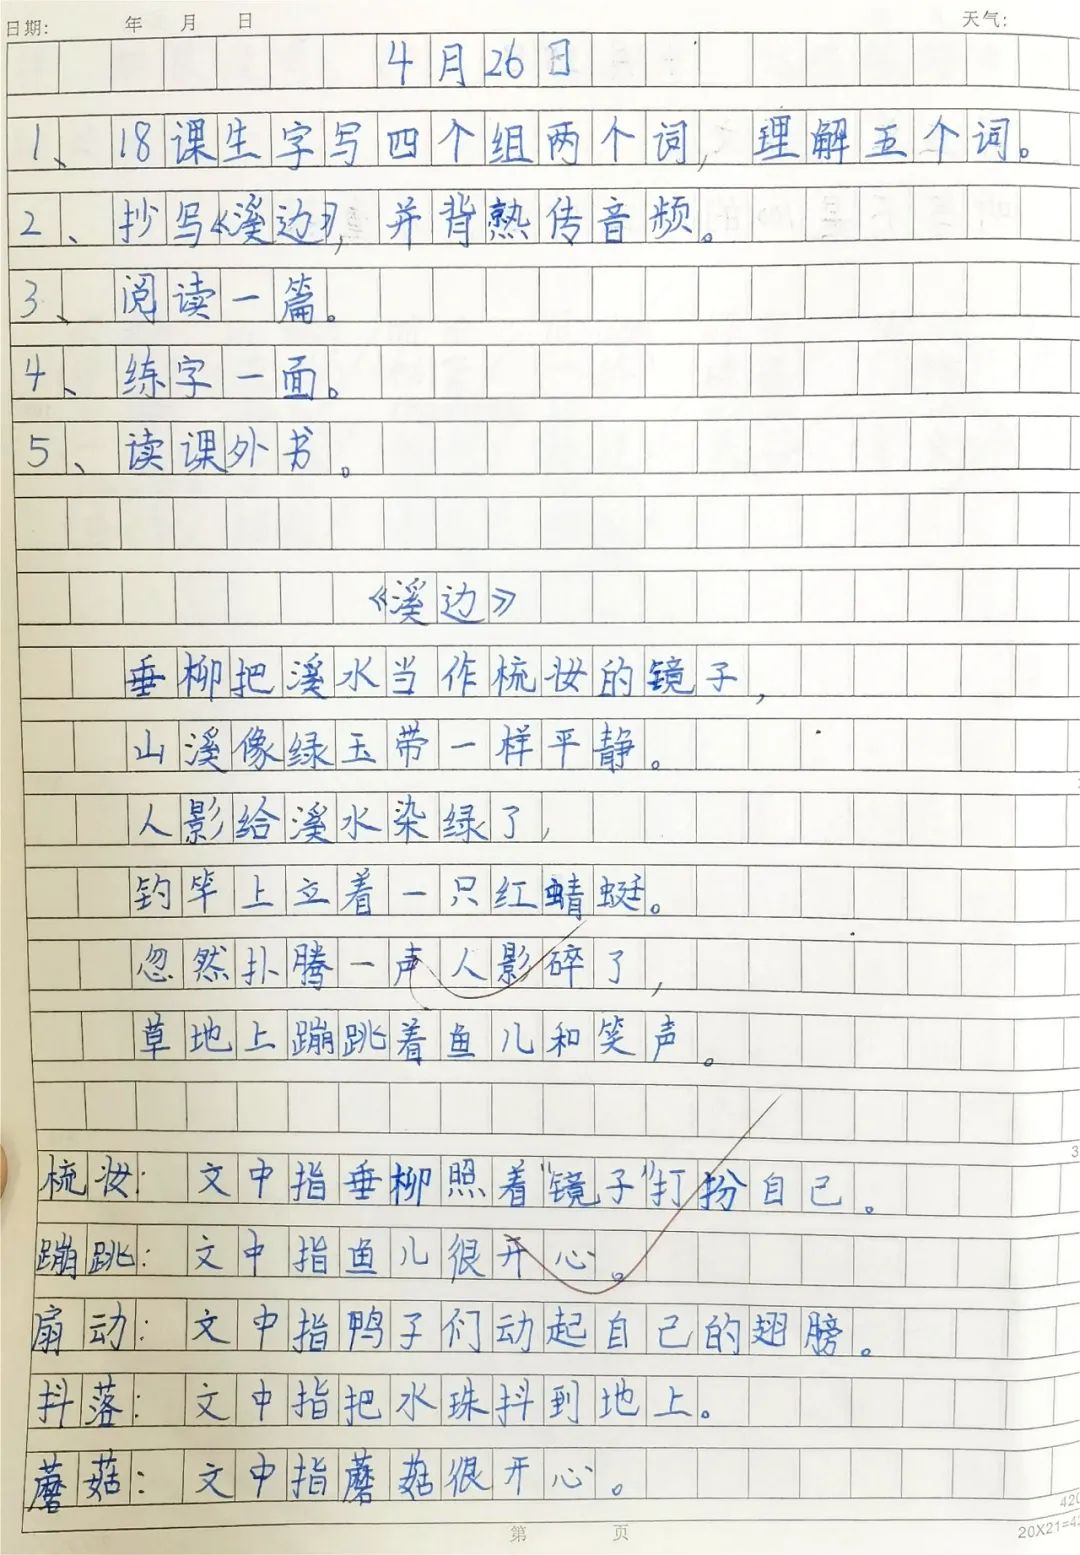 日期: 年 月 日 天气:
4月26日
1、18课生字写四个组两个词，理解五个词。
2、抄写《溪边》，并背熟传音频。
3、阅读一篇。
4、练字一面。
5、读课外书。
《溪边》
垂柳把溪水当作梳妆的镜子，
山溪像绿玉带一样平静。
人影给溪水染绿了，
钓竿上立着一只红蜻蜓。
忽然扑腾一声人影碎了，
草地上蹦跳着鱼儿和笑声。
梳妆：文中指垂柳照着“镜子”打扮自己。
蹦跳：文中指鱼儿很开心。
扇动：文中指鸭子们动起自己的翅膀。
抖落：文中指把水珠抖到地上。
蘑菇：文中指蘑菇很开心。
第 页